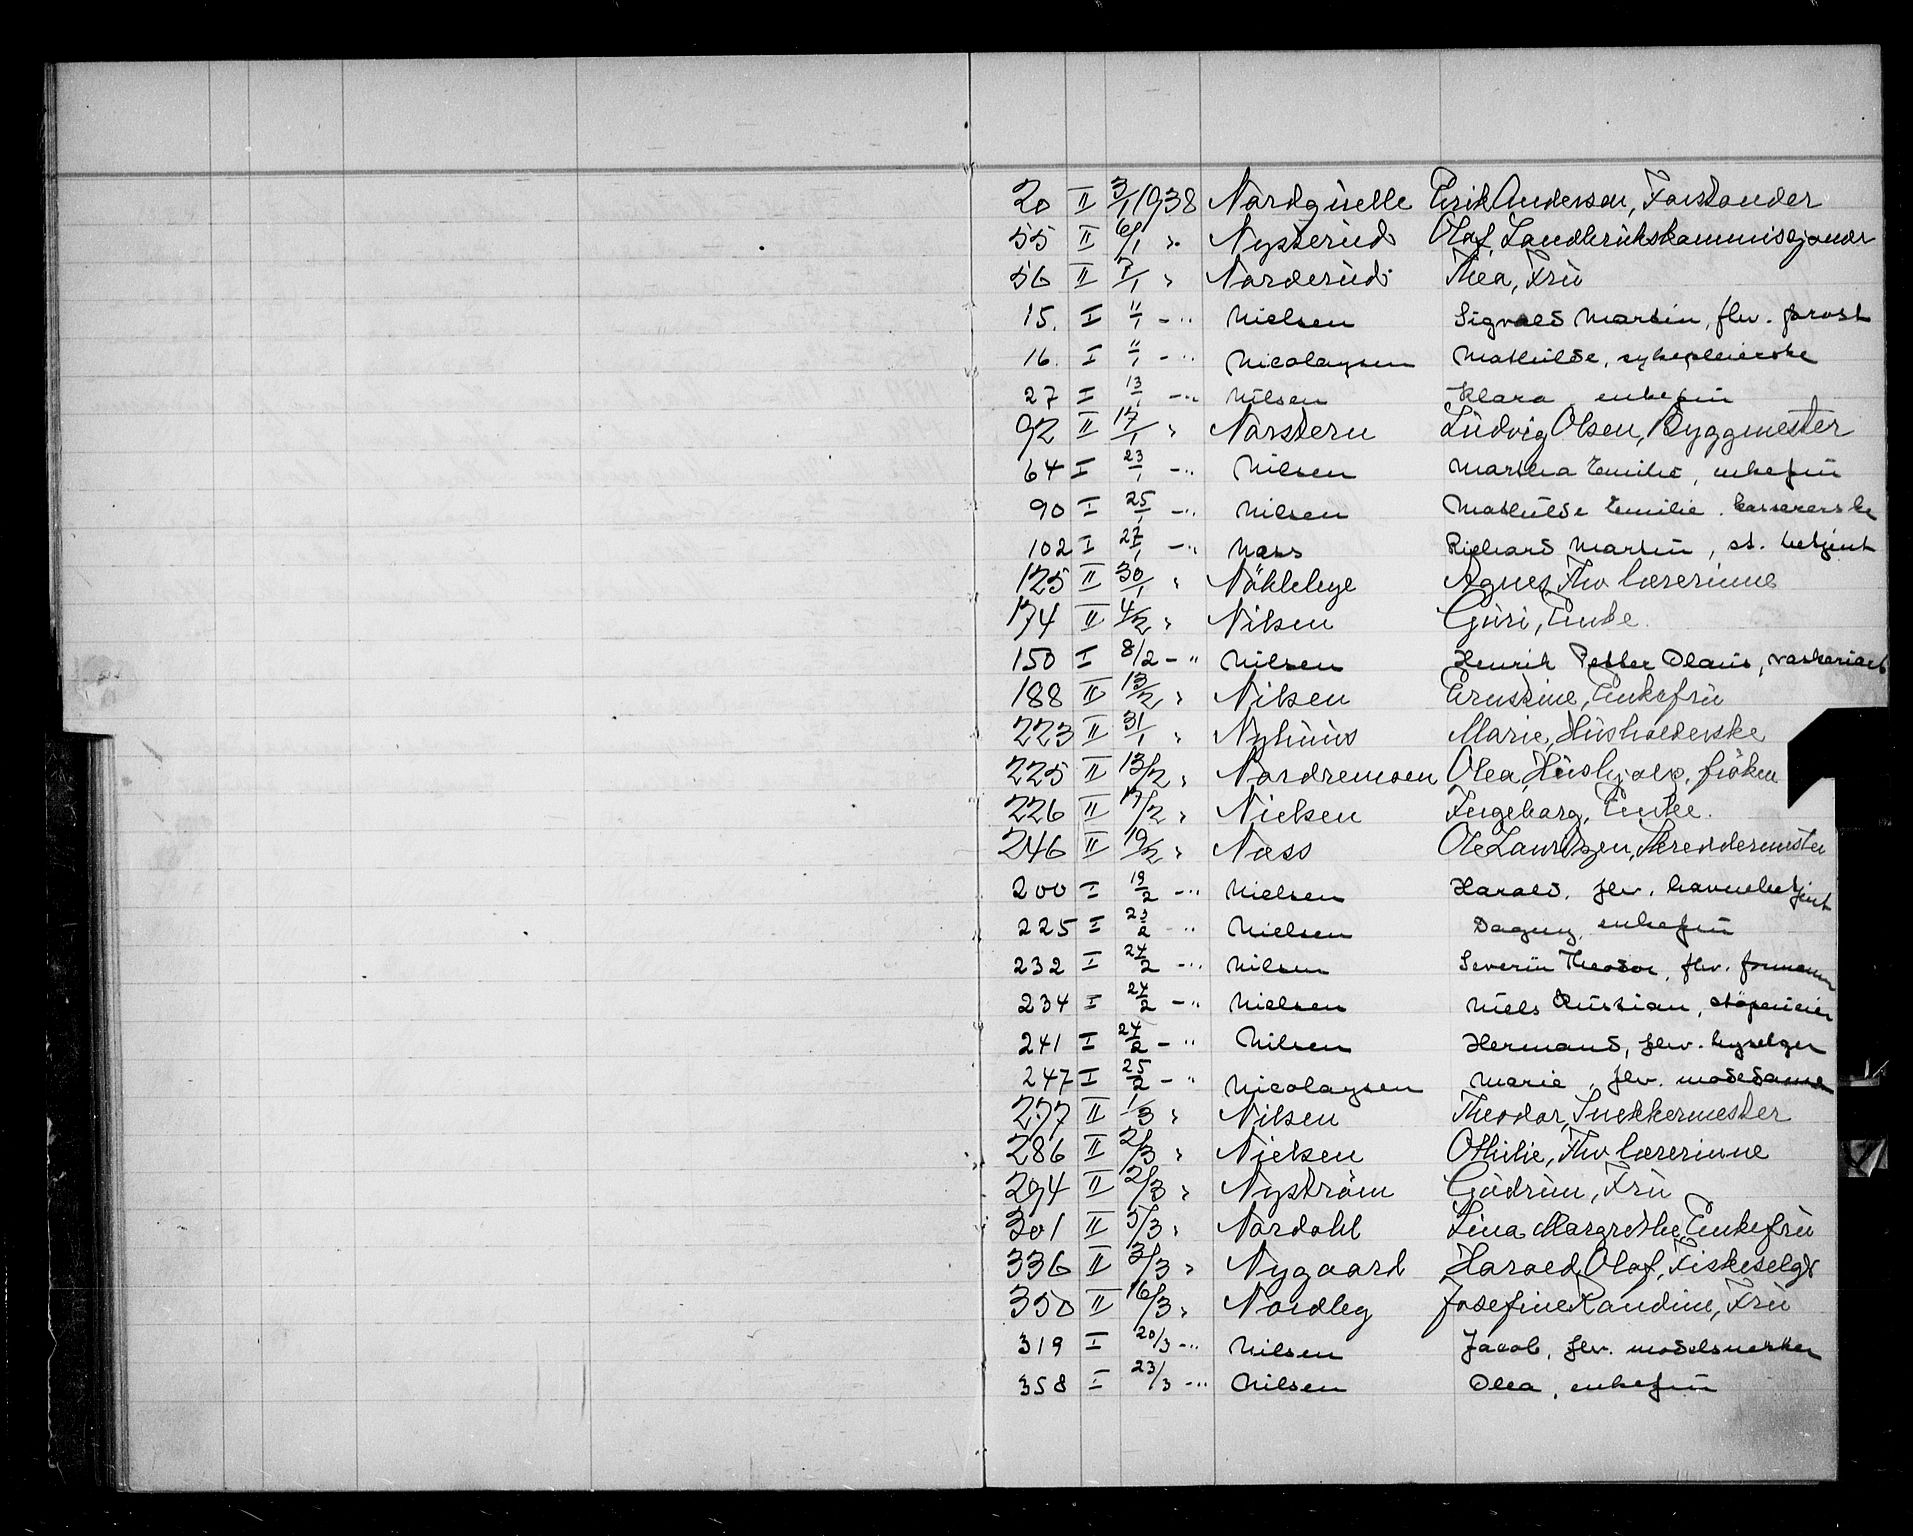 20 II 3/1 1938 Nordquelle Erik Anderson, Forstander
55 II 6/1 " Nysterud Olaf, Landbrukskommissjonær
56 II 7/1 " Norderud Thea, Frü
15. I 11/1 -" Nielsen Sigvald Martin, fhv. forost
16. I 11/1 -" Nicolaysen Mathilde, sykepleierske
27 I 13/1 -" Nilsen Klara enkefrü
92 II 17/1 " Norstern Ludvig Olsen, Byggmester
64 I 23/1 -" Nilsen Martha Emilie, enkefrü
90 I 25/1 -" Nilsen Mathilde Emilie. kassererske
102 I 27/1 -" Næss Richard Martin, st. betjent
125 II 30/1 " Nöklebye Agnes, Fhv lærerinne
174 II 4/2 " Nilsen Guri, Enke
150 I 8/2 -" Nilsen Henrik Petter Olaus, vaskeriarb
188 II 13/2 " Nilsen Ernstine, Enkefrü
223 II 31/1 " Nyhuus Marie, Husholderske
225 II 13/2 " Nordremoen Olea, Hüshjelp, fröken
226 II 17/2 " Nielsen Ingeborg, Enke.
246 II 19/2 " Næss Ole Lauritzen, Skreddermester
200 I 19/2 -" Nielsen Harald, fhv. havnebetjent
225 I 23/2 -" Nielsen Dagny enkefrü
232 I 24/2 -" Nilsen Severin Theodor, fhv. formann
234 I 24/2 -" Nielsen Niels Kristian, støperieier
241 I 24/2 -" Nilsen Hermand, fhv. hyselger
247 I 25/2 -" Nicolaysen Marie, fhv. motedame
277 II 1/3 " Nilsen Theodor, Snekkermester
286 II 2/3 " Nielsen Othilie, Fhv lærerinne
294 II 2/3 " Nyström Gudrun, Frü
301 II 5/3 " Nordahl Lina Margrethe, Enkefrü
336 II 3/3 " Nygaard Harald Olaf, Fiskeselgr
350 II 16/3 " Nordby Josefine Randine, Frü
319 I 20/3 -" Nilsen Jacob, fhv. modelsnekker
358 I 23/3 -" Nilsen Olea, enkefrü